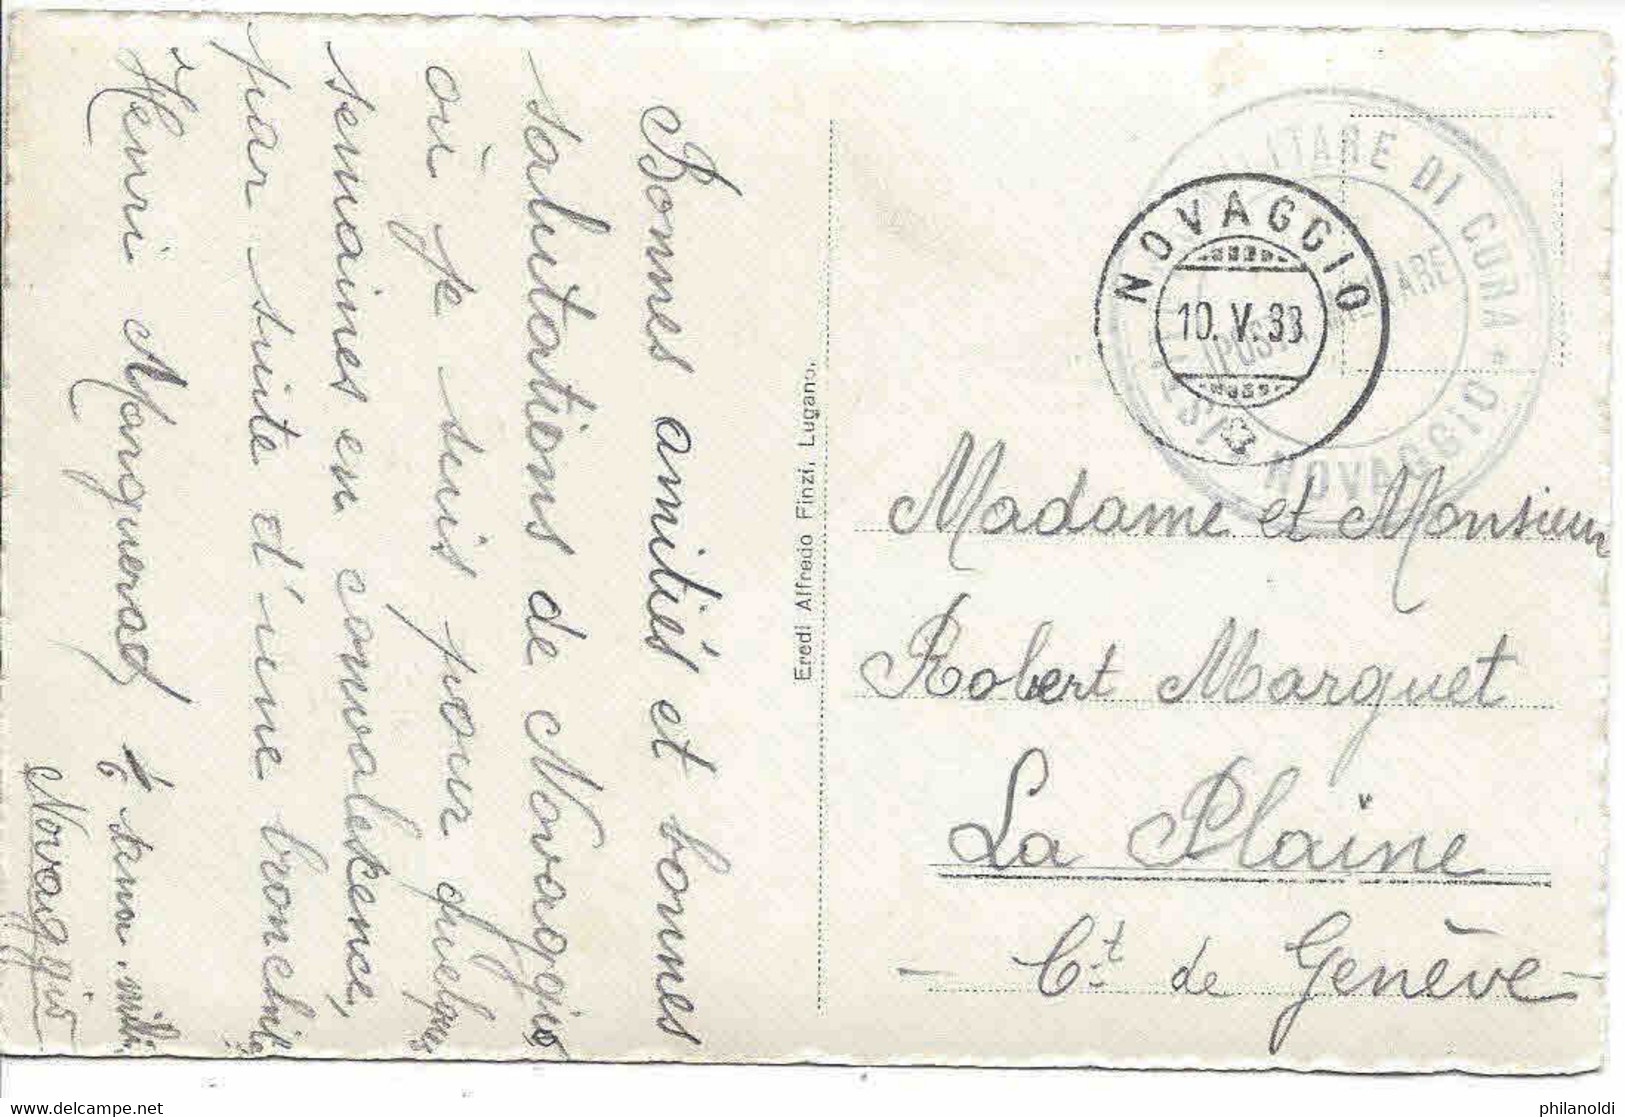 Bonnes amitiés et bonnes
salutations de Novaggio
où je suis pour quelques
semaines en convalescence,
par suite d'une bronchite.
Henri Marguerat
Novaggio
Eredi Alfredo Finzi, Lugano.
MILITARE DI CURA * NOVAGGIO
NOVAGGIO
10. V. 33
Madame et Monsieur
Robert Marguet
La Plaine
Ct. de Genève
www.delcampe.net
philanoldi